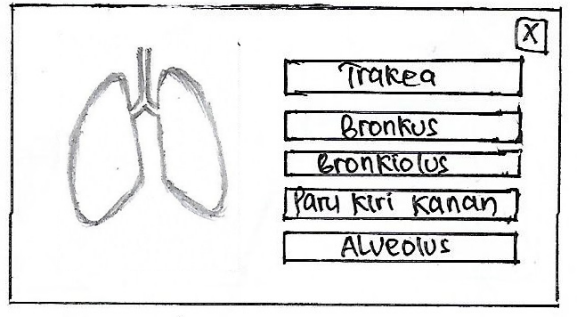 X
Trakea
Bronkus
Bronkiolus
Paru Kiri Kanan
Alveolus